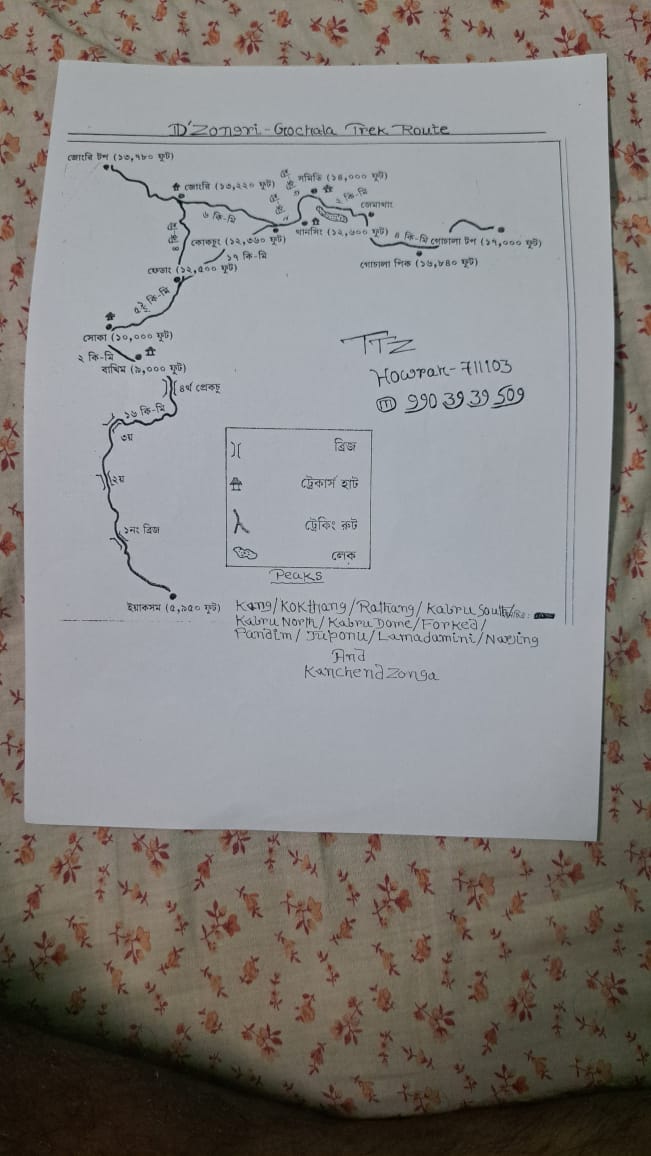 D'Zongri - Gochala Trek Route
জোংরি টপ (১৩,৭৮০ ফুট)
জোংরি (১৩,২২০ ফুট)
সমিতি (১৪,০০০ ফুট)
৬ কি-মি
কোকচুং (১২,৩৬০ ফুট)
থানসিং (১২,৬০০ ফুট)
কি-মি গোচালা টপ (১৭,০০০ ফুট)
১৭ কি-মি
গোচালা পিক (১৬,৮৪০ ফুট)
ফেডাং (১২,৫০০ ফুট)
কি-মি
সোকা (১০,০০০ ফুট)
২ কি-মি
বাখিম (৯,০০০ ফুট)
৪র্থ প্রেকচু
১৬ কি-মি
৩য়
২য়
১নং ব্রিজ
ইয়াকসম (৫,৯৫০ ফুট)
TTZ
Howrah - 711103
(m) 990 39 39 509
ব্রিজ
ট্রেকার্স হাট
ট্রেকিং রুট
লেক
Peaks
Kang/Kokthang/Rathang/Kabru South/
Kabru North/Kabru Dome/Forked/
Pandim/Juponu/Lamadamini/Narsing
And
KanchendZonga